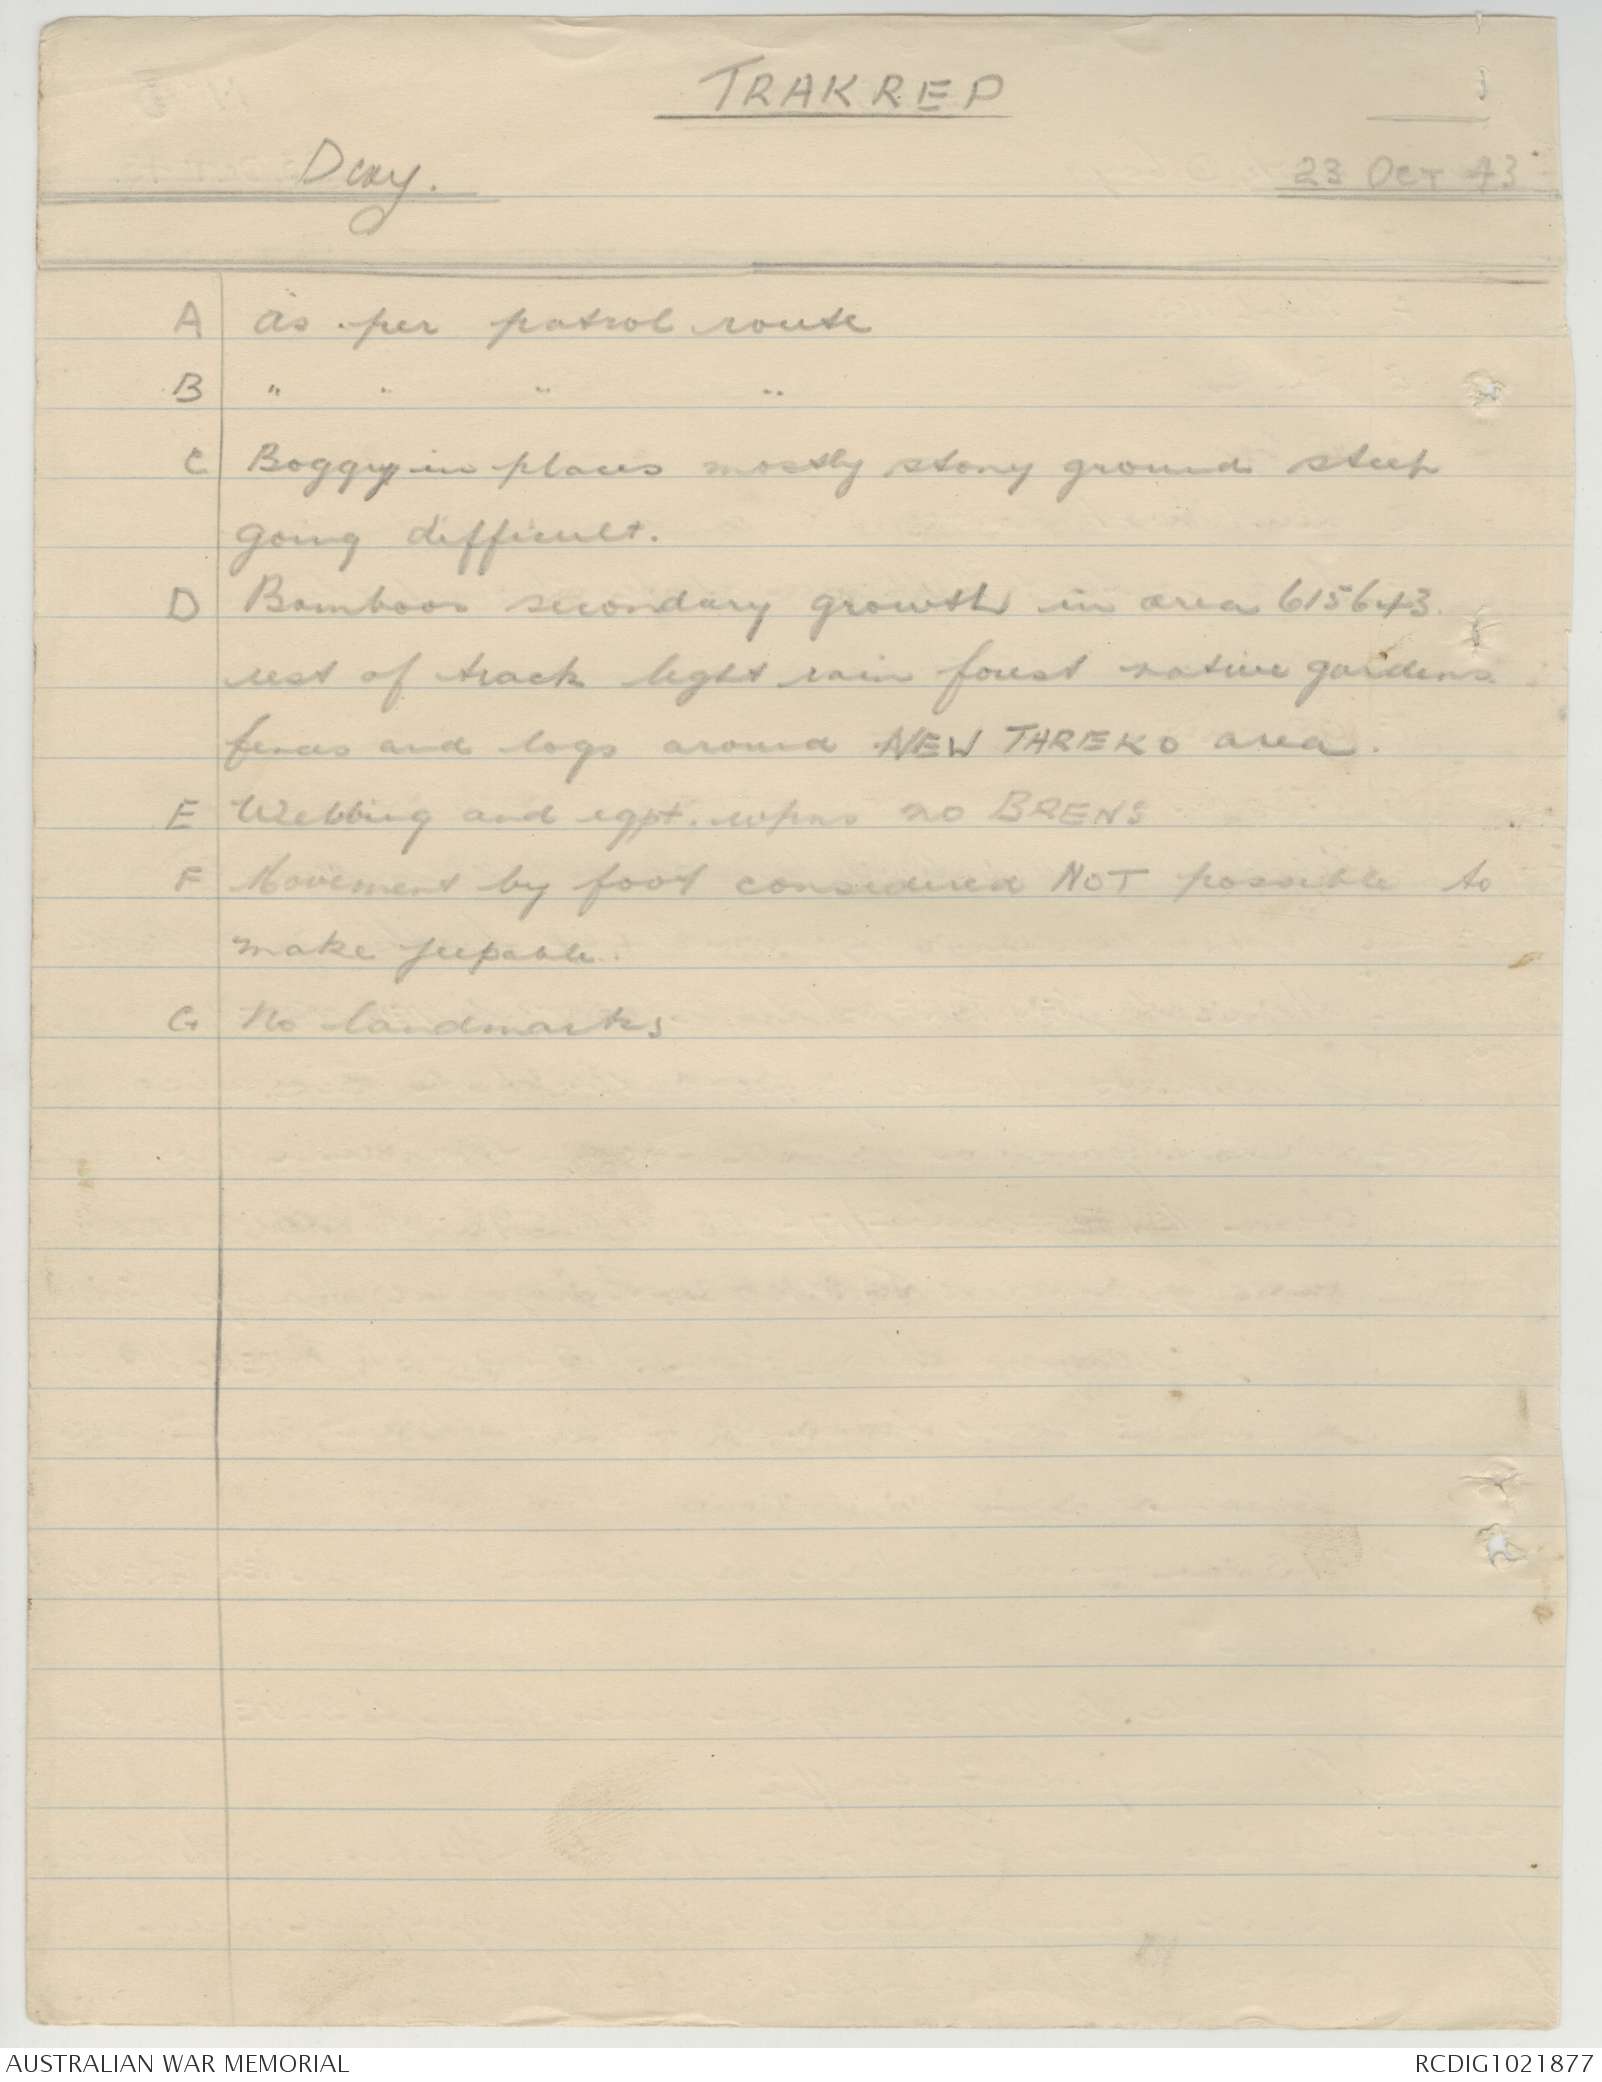 TRAKREP
D Coy.
23 OCT 43
A as per patrol route
B " " " "
C Boggy in places mostly stony ground steep
going difficult.
D Bamboos secondary growth in area 615643.
rest of track light rain forest native gardens
fences and logs around NEW THREKO area.
E Webbing and eqpt. wpns no BRENS
F Movement by foot considered NOT possible to
make jeepable.
G No landmarks
AUSTRALIAN WAR MEMORIAL
RCDIG1021877